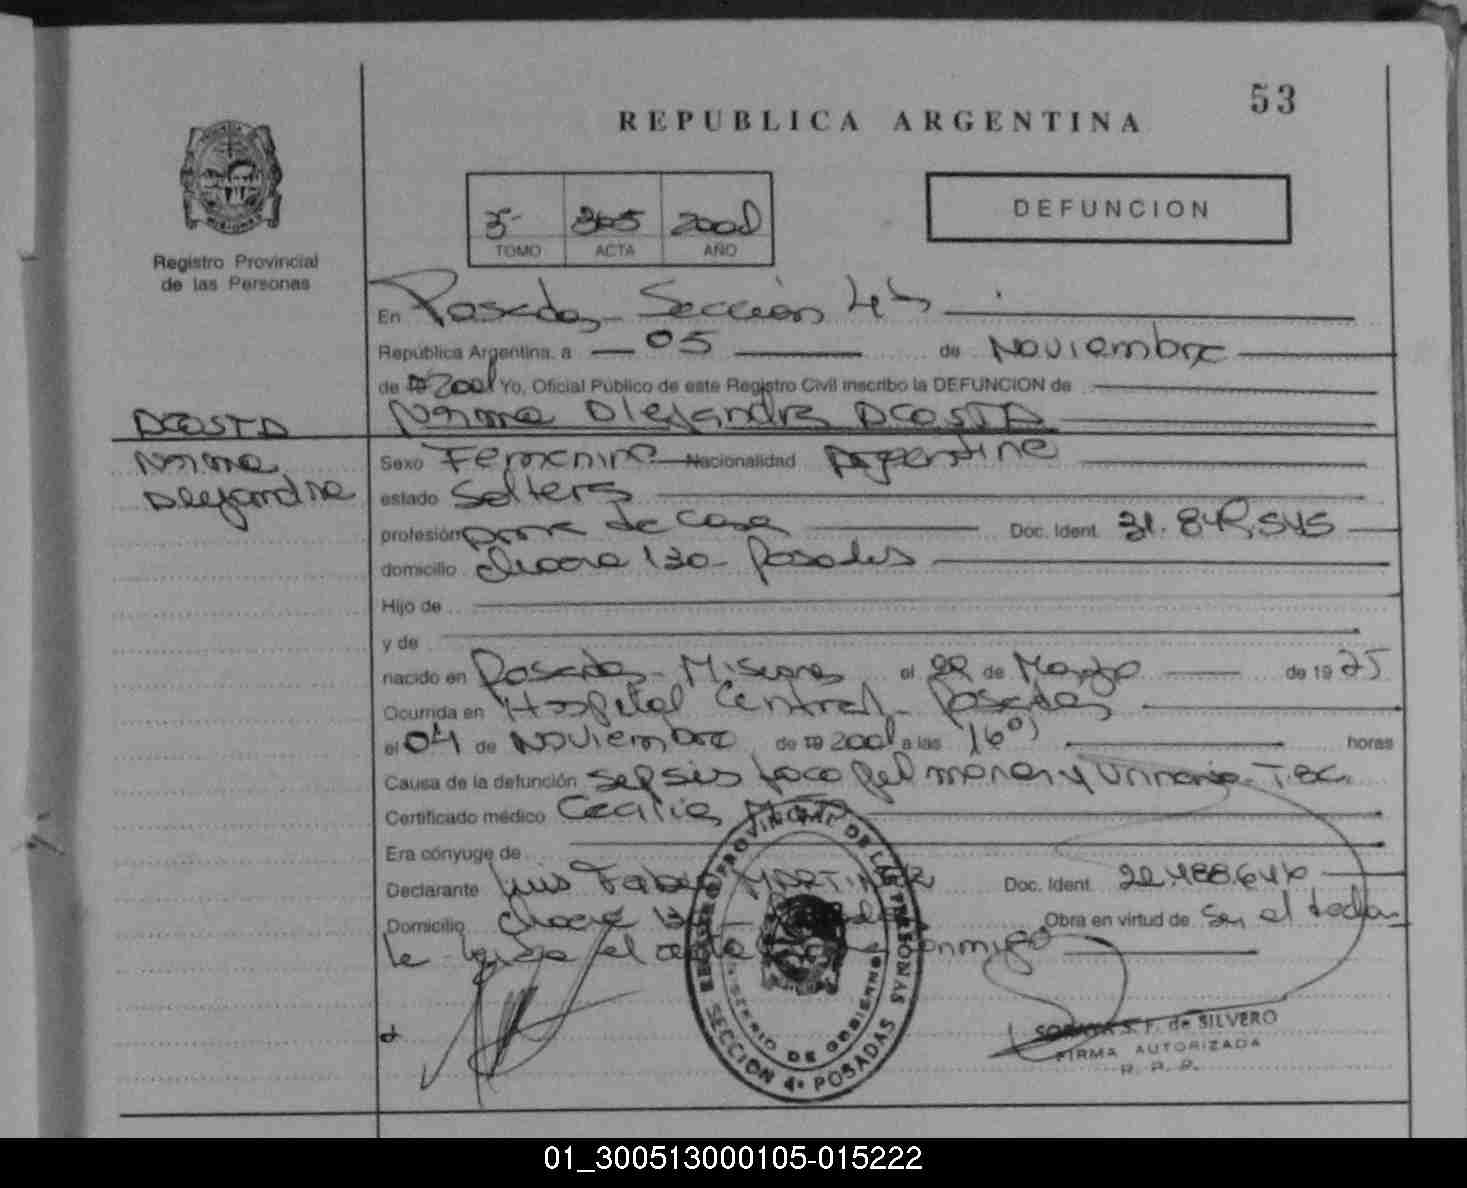 53
REPUBLICA ARGENTINA
DEFUNCION
3- 365 2001
TOMO ACTA AÑO
Registro Provincial
de las Personas
En Posadas - Sección 4ta
República Argentina, a 05 de Noviembre
de 19 2001 Yo, Oficial Público de este Registro Civil inscribo la DEFUNCION de
ACOSTA Norma Alejandra ACOSTA
Norma Sexo Femenino Nacionalidad Argentina
Alejandra estado Soltera
profesión ama de casa Doc. Ident.
domicilio Chacra 130 - Posadas
Hijo de
y de
nacido en Posadas - Misiones el 22 de Marzo de 19
Ocurrida en Hospital Central - Posadas
el 04 de Noviembre de 19 2001 a las 16 horas
Causa de la defunción sepsis foco pulmonar y urinario - T.B.C.
Certificado médico Cecilia
Era cónyuge de
Declarante Luis MARTINEZ Doc. Ident.
Domicilio Chacra Obra en virtud de Ser el
le el conmigo
REGISTRO PROVINCIAL DE LAS PERSONAS
MINISTERIO DE GOBIERNO
SECCION 4ª POSADAS
S. F. de SILVERO
FIRMA AUTORIZADA
R. P. P.
01_300513000105-015222